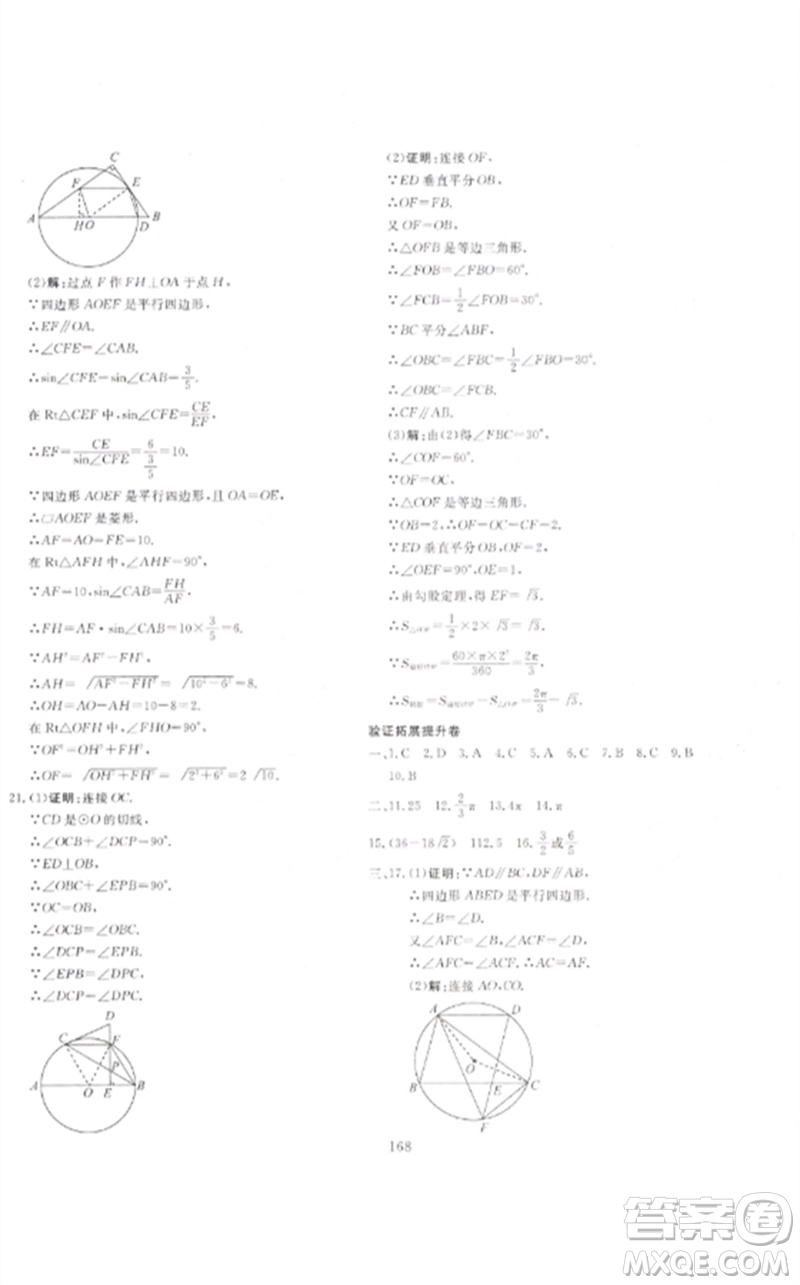 C
F
E
A
H
O
D
B
(2)解:过点 F 作 FH⊥OA 于点 H,
∵四边形 AOEF 是平行四边形,
∴EF∥OA.
∴∠CFE=∠CAB.
∴sin∠CFE=sin∠CAB=3/5.
在 Rt△CEF 中,sin∠CFE=CE/EF,
∴EF=CE/sin∠CFE=6/(3/5)=10.
∵四边形 AOEF 是平行四边形,且 OA=OE,
∴□AOEF 是菱形.
∴AF=AO=FE=10.
在 Rt△AFH 中,∠AFH=90°,
∵AF=10,sin∠CAB=FH/AF,
∴FH=AF·sin∠CAB=10×3/5=6.
∵AH²=AF²-FH²,
∴AH=√(AF²-FH²)=√(10²-6²)=8.
∴OH=AO-AH=10-8=2.
在 Rt△OFH 中,∠FHO=90°,
∵OF²=OH²+FH²,
∴OF=√(OH²+FH²)=√(2²+6²)=2√10.
21.(1)证明:连接 OC.
∵CD 是⊙O 的切线,
∴∠OCB+∠DCP=90°.
∵ED⊥OB,
∴∠OBC+∠EPB=90°.
∵OC=OB,
∴∠OCB=∠OBC.
∴∠DCP=∠EPB.
∵∠EPB=∠DPC,
∴∠DCP=∠DPC.
D
C
F
P
A
O
E
B
(2)证明:连接 OF,
∵ED 垂直平分 OB,
∴OF=FB.
又 OF=OB,
∴△OFB 是等边三角形.
∴∠FOB=∠FBO=60°.
∵∠FCB=1/2∠FOB=30°,
∵BC 平分∠ABF,
∴∠OBC=∠FBC=1/2∠FBO=30°.
∴∠OBC=∠FCB.
∴CF∥AB.
(3)解:由(2)得∠FBC=30°,
∴∠COF=60°.
∵OF=OC,
∴△COF 是等边三角形.
∵OB=2,∴OF=OC=CF=2.
∵ED 垂直平分 OB,
∴∠OEF=90°,OE=1,
∴由勾股定理,得 EF=√3.
∴S△COF=1/2×2×√3=√3.
∵S扇形COF=60×π×2²/360=2π/3,
∴S阴影=S扇形COF-S△COF=2π/3-√3.
验证拓展提升卷
一、1.C 2.D 3.A 4.C 5.A 6.C 7.B 8.C 9.B
10.B
二、11.25 12.2/3π 13.4π 14.C
15.(36-18√2) 112.5 16.3/2或6/5
三、17.(1)证明:∵AD∥BC,DF∥AB,
∴四边形 ABED 是平行四边形.
∴∠B=∠D.
又∠AFC=∠B,∠ACF=∠D,
∴∠AFC=∠ACF.
(2)解:连接 AO,CO.
A
D
O
B
E
C
F
168
答案卷
MXQE.COM